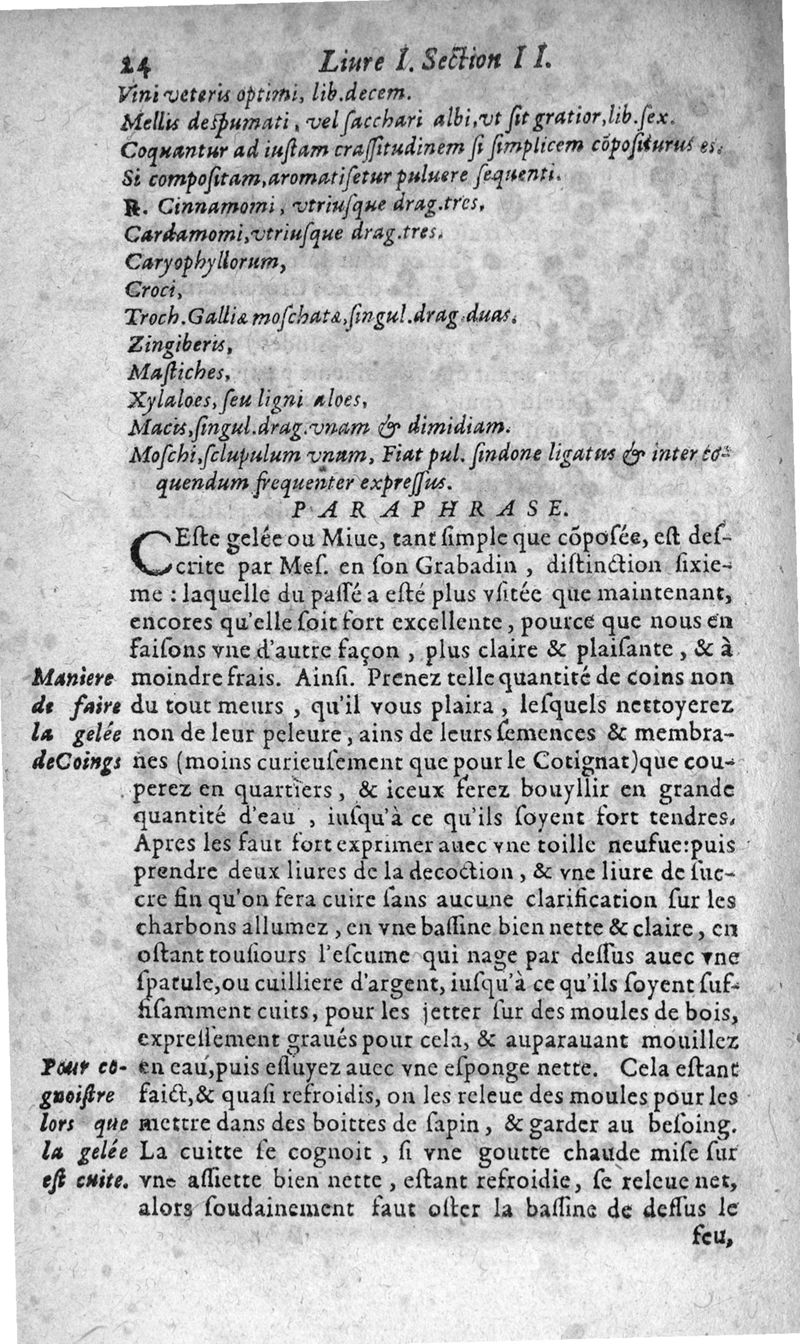 24 Liure I. Section II.
Vini veteris optimi, lib.decem.
Mellis despumati, vel ſacchari albi,vt ſit gratior,lib.ſex.
Coquantur ad iuſtam craſſitudinem ſi ſimplicem cõpoſiturus es.
Si compoſitam,aromatiſetur puluere ſequenti.
R. Cinnamomi, vtriuſque drag.tres.
Cardamomi,vtriuſque drag.tres.
Caryophyllorum,
Croci,
Troch.Galliæ moſchatæ,ſingul.drag.duas.
Zingiberis,
Maſtiches,
Xylaloes, ſeu ligni aloes,
Macis,ſingul.drag.vnam & dimidiam.
Moſchi,ſclupulum vnum, Fiat pul. ſindone ligatus & inter co-
quendum frequenter expreſſus.
PARAPHRASE.
CEſte gelée ou Miue, tant ſimple que cõpoſée, eſt deſ-
crite par Meſ. en ſon Grabadin, diſtinction ſixie-
me : laquelle du paſſé a eſté plus vſitée que maintenant,
encores qu'elle ſoit fort excellente, pource que nous en
faiſons vne d'autre façon, plus claire & plaiſante, & à
Maniere moindre frais. Ainſi. Prenez telle quantité de coins non
de faire du tout meurs, qu'il vous plaira, leſquels nettoyerez
la gelée non de leur peleure, ains de leurs ſemences & membra-
deCoings nes (moins curieuſement que pour le Cotignat)que cou-
perez en quartiers, & iceux ferez bouyllir en grande
quantité d'eau, iuſqu'à ce qu'ils ſoyent fort tendres.
Apres les faut fort exprimer auec vne toille neufue:puis
prendre deux liures de la decoction, & vne liure de ſuc-
cre fin qu'on fera cuire ſans aucune clarification ſur les
charbons allumez, en vne baſſine bien nette & claire, en
oſtant touſiours l'eſcume qui nage par deſſus auec vne
ſpatule,ou cuilliere d'argent, iuſqu'à ce qu'ils ſoyent ſuf-
fiſamment cuits, pour les jetter ſur des moules de bois,
expreſſement graués pour cela, & auparauant mouillez
Pour co- en eau,puis eſſuyez auec vne eſponge nette. Cela eſtant
gnoiſtre faict,& quaſi refroidis, on les releue des moules pour les
lors que mettre dans des boittes de ſapin, & garder au beſoing.
la gelée La cuitte ſe cognoit, ſi vne goutte chaude miſe ſur
eſt cuite. vne aſſiette bien nette, eſtant refroidie, ſe releue net,
alors ſoudainement faut oſter la baſſine de deſſus le
feu,